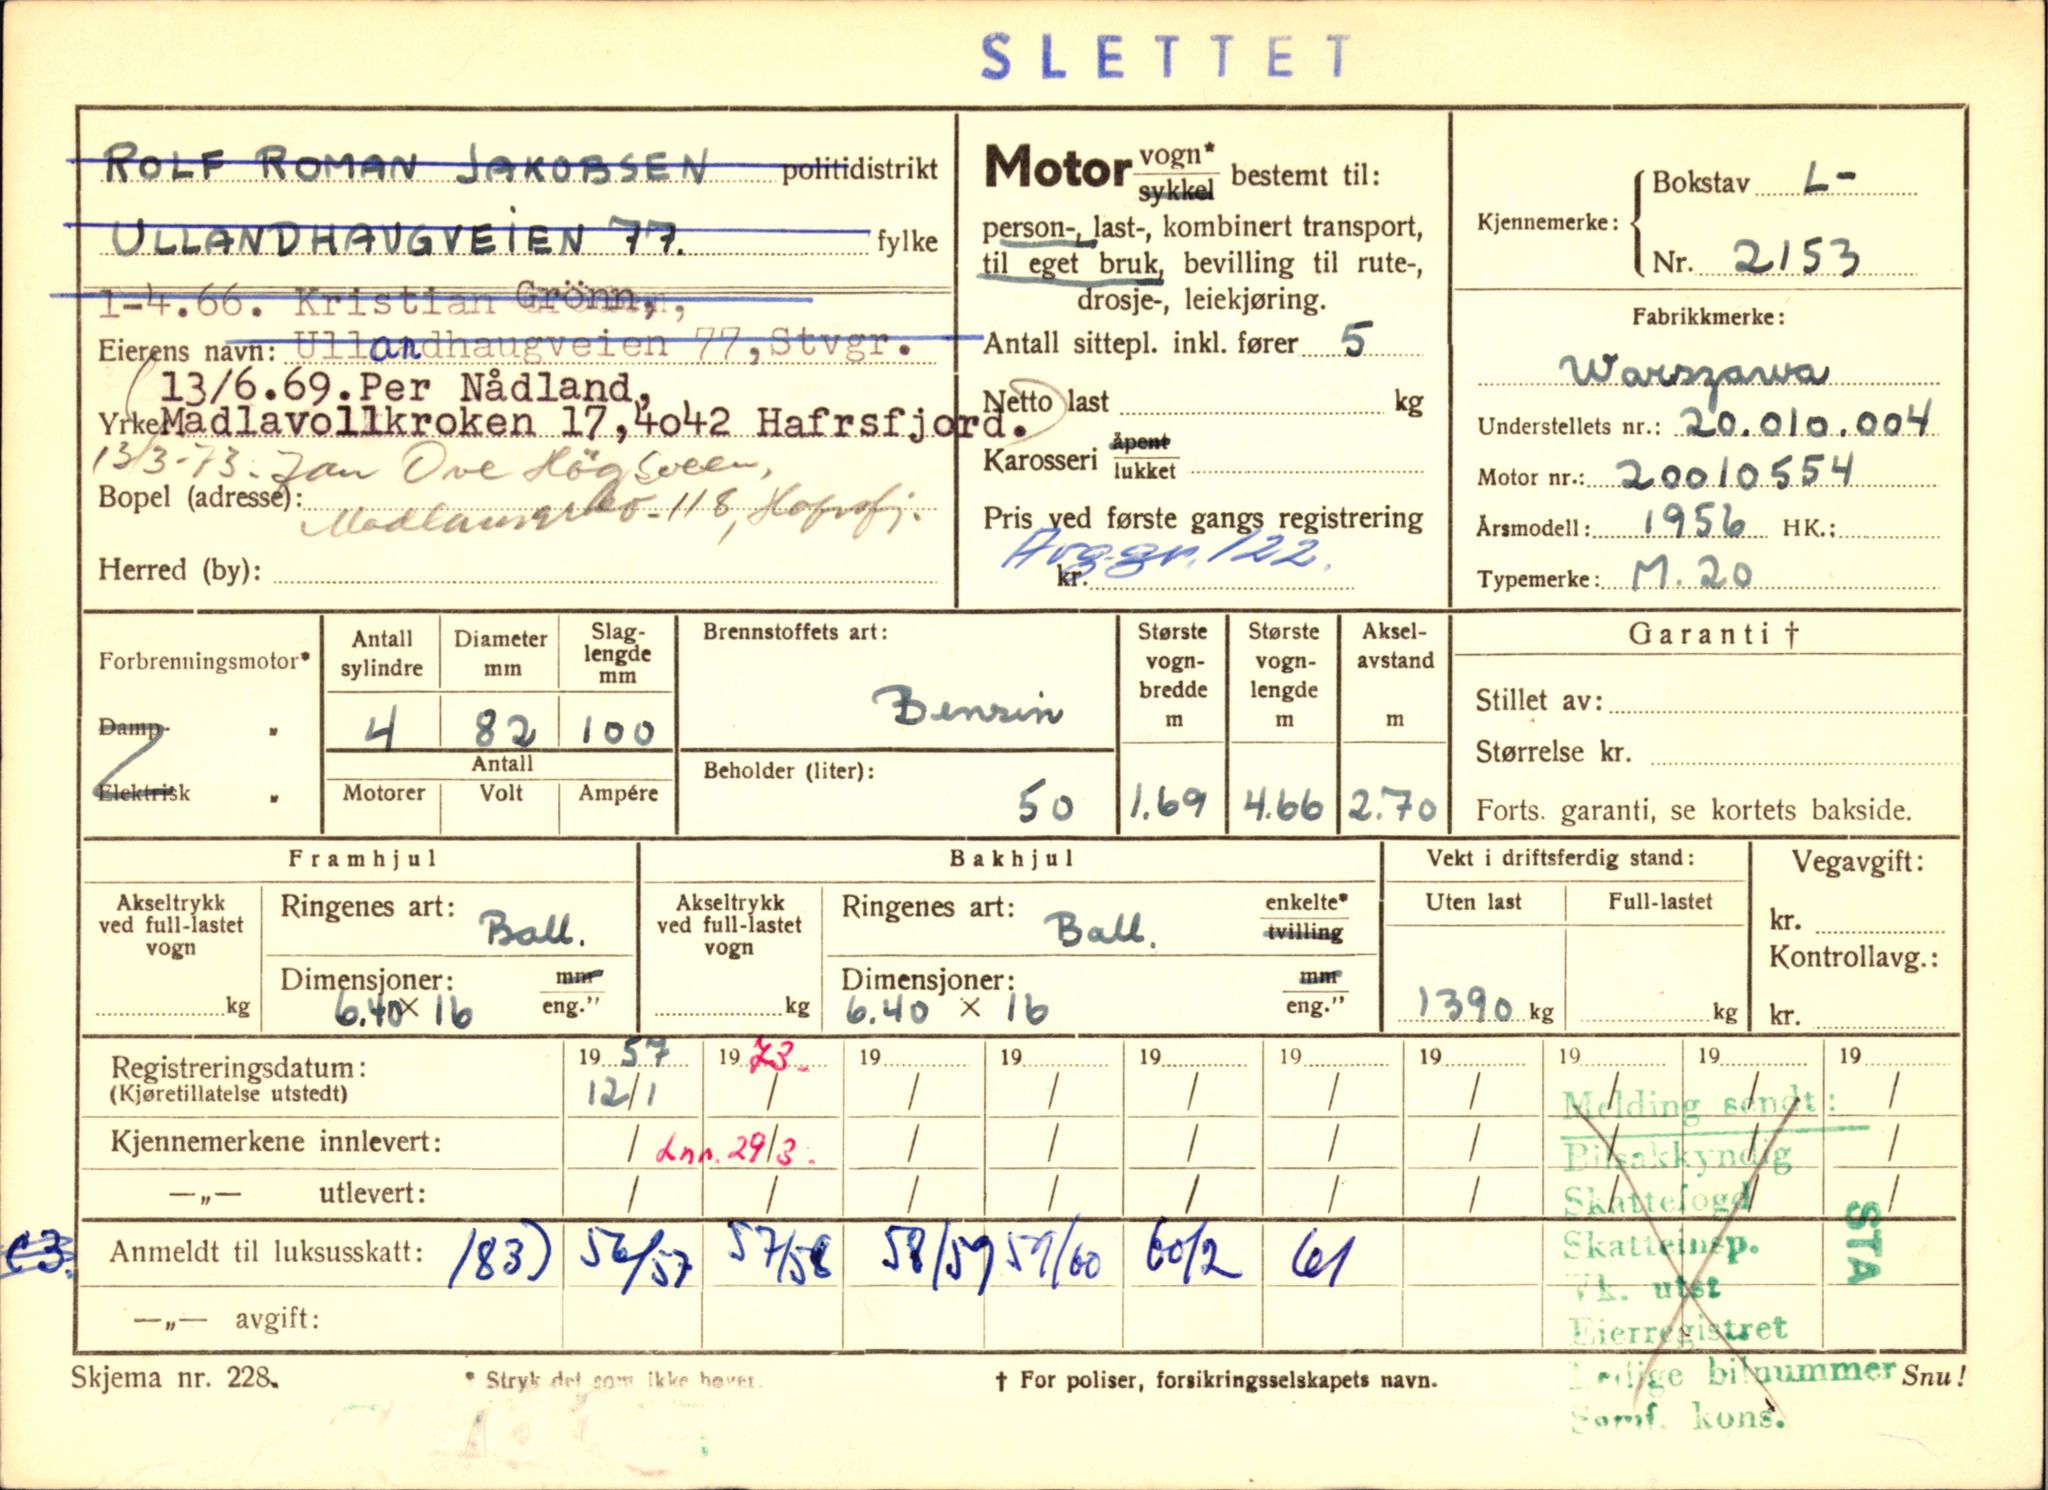 SLETTET
ROLF ROMAN JAKOBSEN politidistrikt
ULLANDHAUGVEIEN 77. fylke
1-4.66. Kristian Grönn,
Eierens navn: Ullandhaugveien 77, Stvgr.
13/6.69. Per Nådland,
Yrke Madlavollkroken 17, 4o42 Hafrsfjord.
13/3-73. Jan Ove Högsveen,
Bopel (adresse): 118, Hafrsfj.
Herred (by):
Motor vogn* sykkel bestemt til:
person-, last-, kombinert transport,
til eget bruk, bevilling til rute-,
drosje-, leiekjøring.
Antall sittepl. inkl. fører 5
Netto last kg
Karosseri åpent lukket
Pris ved første gangs registrering
Avg.gr. 122.
kr.
Kjennemerke: Bokstav L-
Nr. 2153
Fabrikkmerke:
Warszawa
Understellets nr.: 20.010.004
Motor nr.: 20010554
Årsmodell: 1956 HK.:
Typemerke: M. 20
Forbrenningsmotor*
Damp- „
Elektrisk „
Antall sylindre
4
Diameter mm
82
Slag-lengde mm
100
Antall
Motorer Volt Ampére
Brennstoffets art:
Bensin
Beholder (liter):
50
Største vogn-bredde m
1.69
Største vogn-lengde m
4.66
Aksel-avstand m
2.70
Garanti †
Stillet av:
Størrelse kr.
Forts. garanti, se kortets bakside.
Framhjul
Akseltrykk ved full-lastet vogn
kg
Ringenes art: Ball.
Dimensjoner: mm
6.40 × 16 eng."
Bakhjul
Akseltrykk ved full-lastet vogn
kg
Ringenes art: Ball. enkelte* tvilling
Dimensjoner: mm
6.40 × 16 eng."
Vekt i driftsferdig stand:
Uten last Full-lastet
1390 kg kg
Vegavgift:
kr.
Kontrollavg.:
kr.
Registreringsdatum: 19 57 19 73. 19 19 19 19 19 19 19 19
(Kjøretillatelse utstedt) 12/1 / / / / / / / / /
Kjennemerkene innlevert: / Inn. 29/3. / / / / / / / /
—„— utlevert: / / / / / / / / / /
c3. Anmeldt til luksusskatt: 183) 56/57 57/58 58/59 59/60 60/2 61
—„— avgift:
Melding sendt:
Bilsakkyndig
Skattefogd
Skatteinsp.
Vk. utst
Eierregistret
Ledige bilnummer
Samf. kons.
STA
Skjema nr. 228. * Stryk det som ikke høver. † For poliser, forsikringsselskapets navn. Snu!